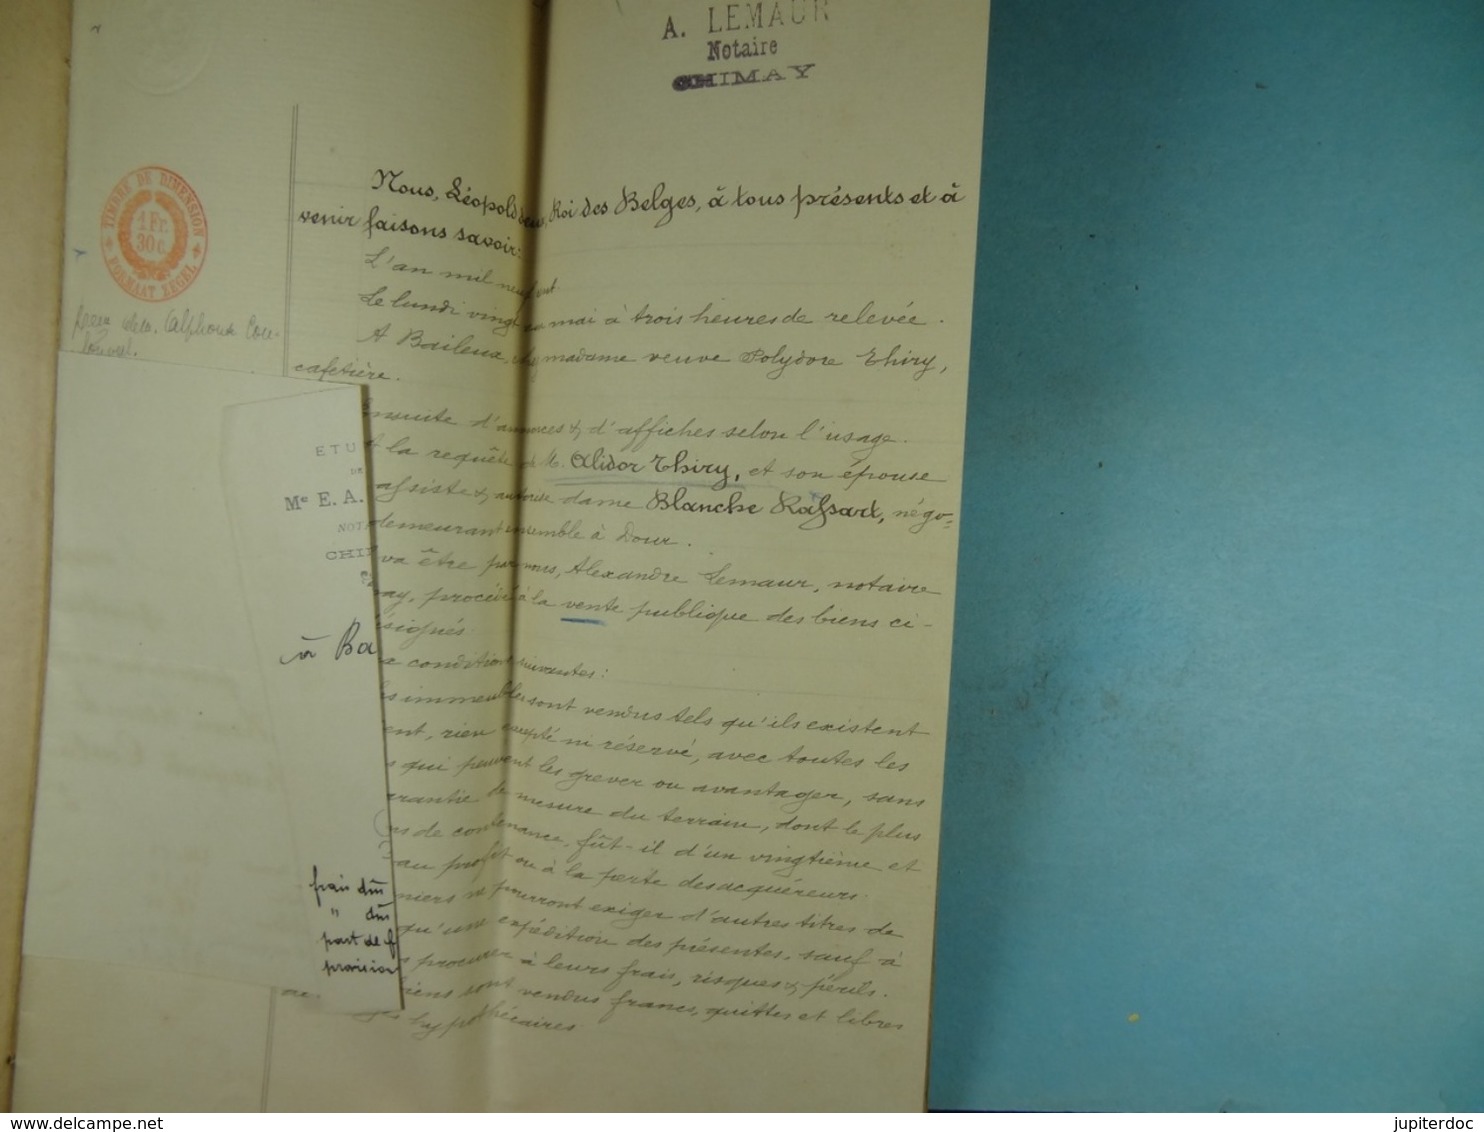 A. LEMAUR
Notaire
CHIMAY
TIMBRE DE DIMENSION
1 Fr.
30 c.
FORMAAT ZEGEL
Nous, Léopold deux, Roi des Belges, à tous présents et à
venir faisons savoir:
L'an mil neuf cent
Le lundi vingt mai à trois heures de relevée.
A Baileux, chez madame veuve Polydore Thiry,
cafetière.
Ensuite d'annonces & d'affiches selon l'usage.
A la requête de M. Alidor Thiry, et son épouse
assiste & autorise dame Blanche Rassart, négo-
demeurant ensemble à Dour.
va être par nous, Alexandre Lemaur, notaire
may, procédé à la vente publique des biens ci-
signés
x conditions suivantes:
s immeubles sont vendus tels qu'ils existent
ent, rien excepté ni réservé, avec toutes les
s qui peuvent les grever ou avantager, sans
arantie de mesure du terrain, dont le plus
ns de contenance, fût-il d'un vingtième et
au profit ou à la perte des acquéreurs.
niers ne pourront exiger d'autres titres de
qu'une expédition des présentes, sauf à
s procurer à leurs frais, risques & périls.
iens sont vendus francs, quittes et libres
hypothécaires
ETU
DE
Me E. A.
NOTA
CHI
à Ba
frais dûs
" dûs
part de f
provision
jupiterdoc